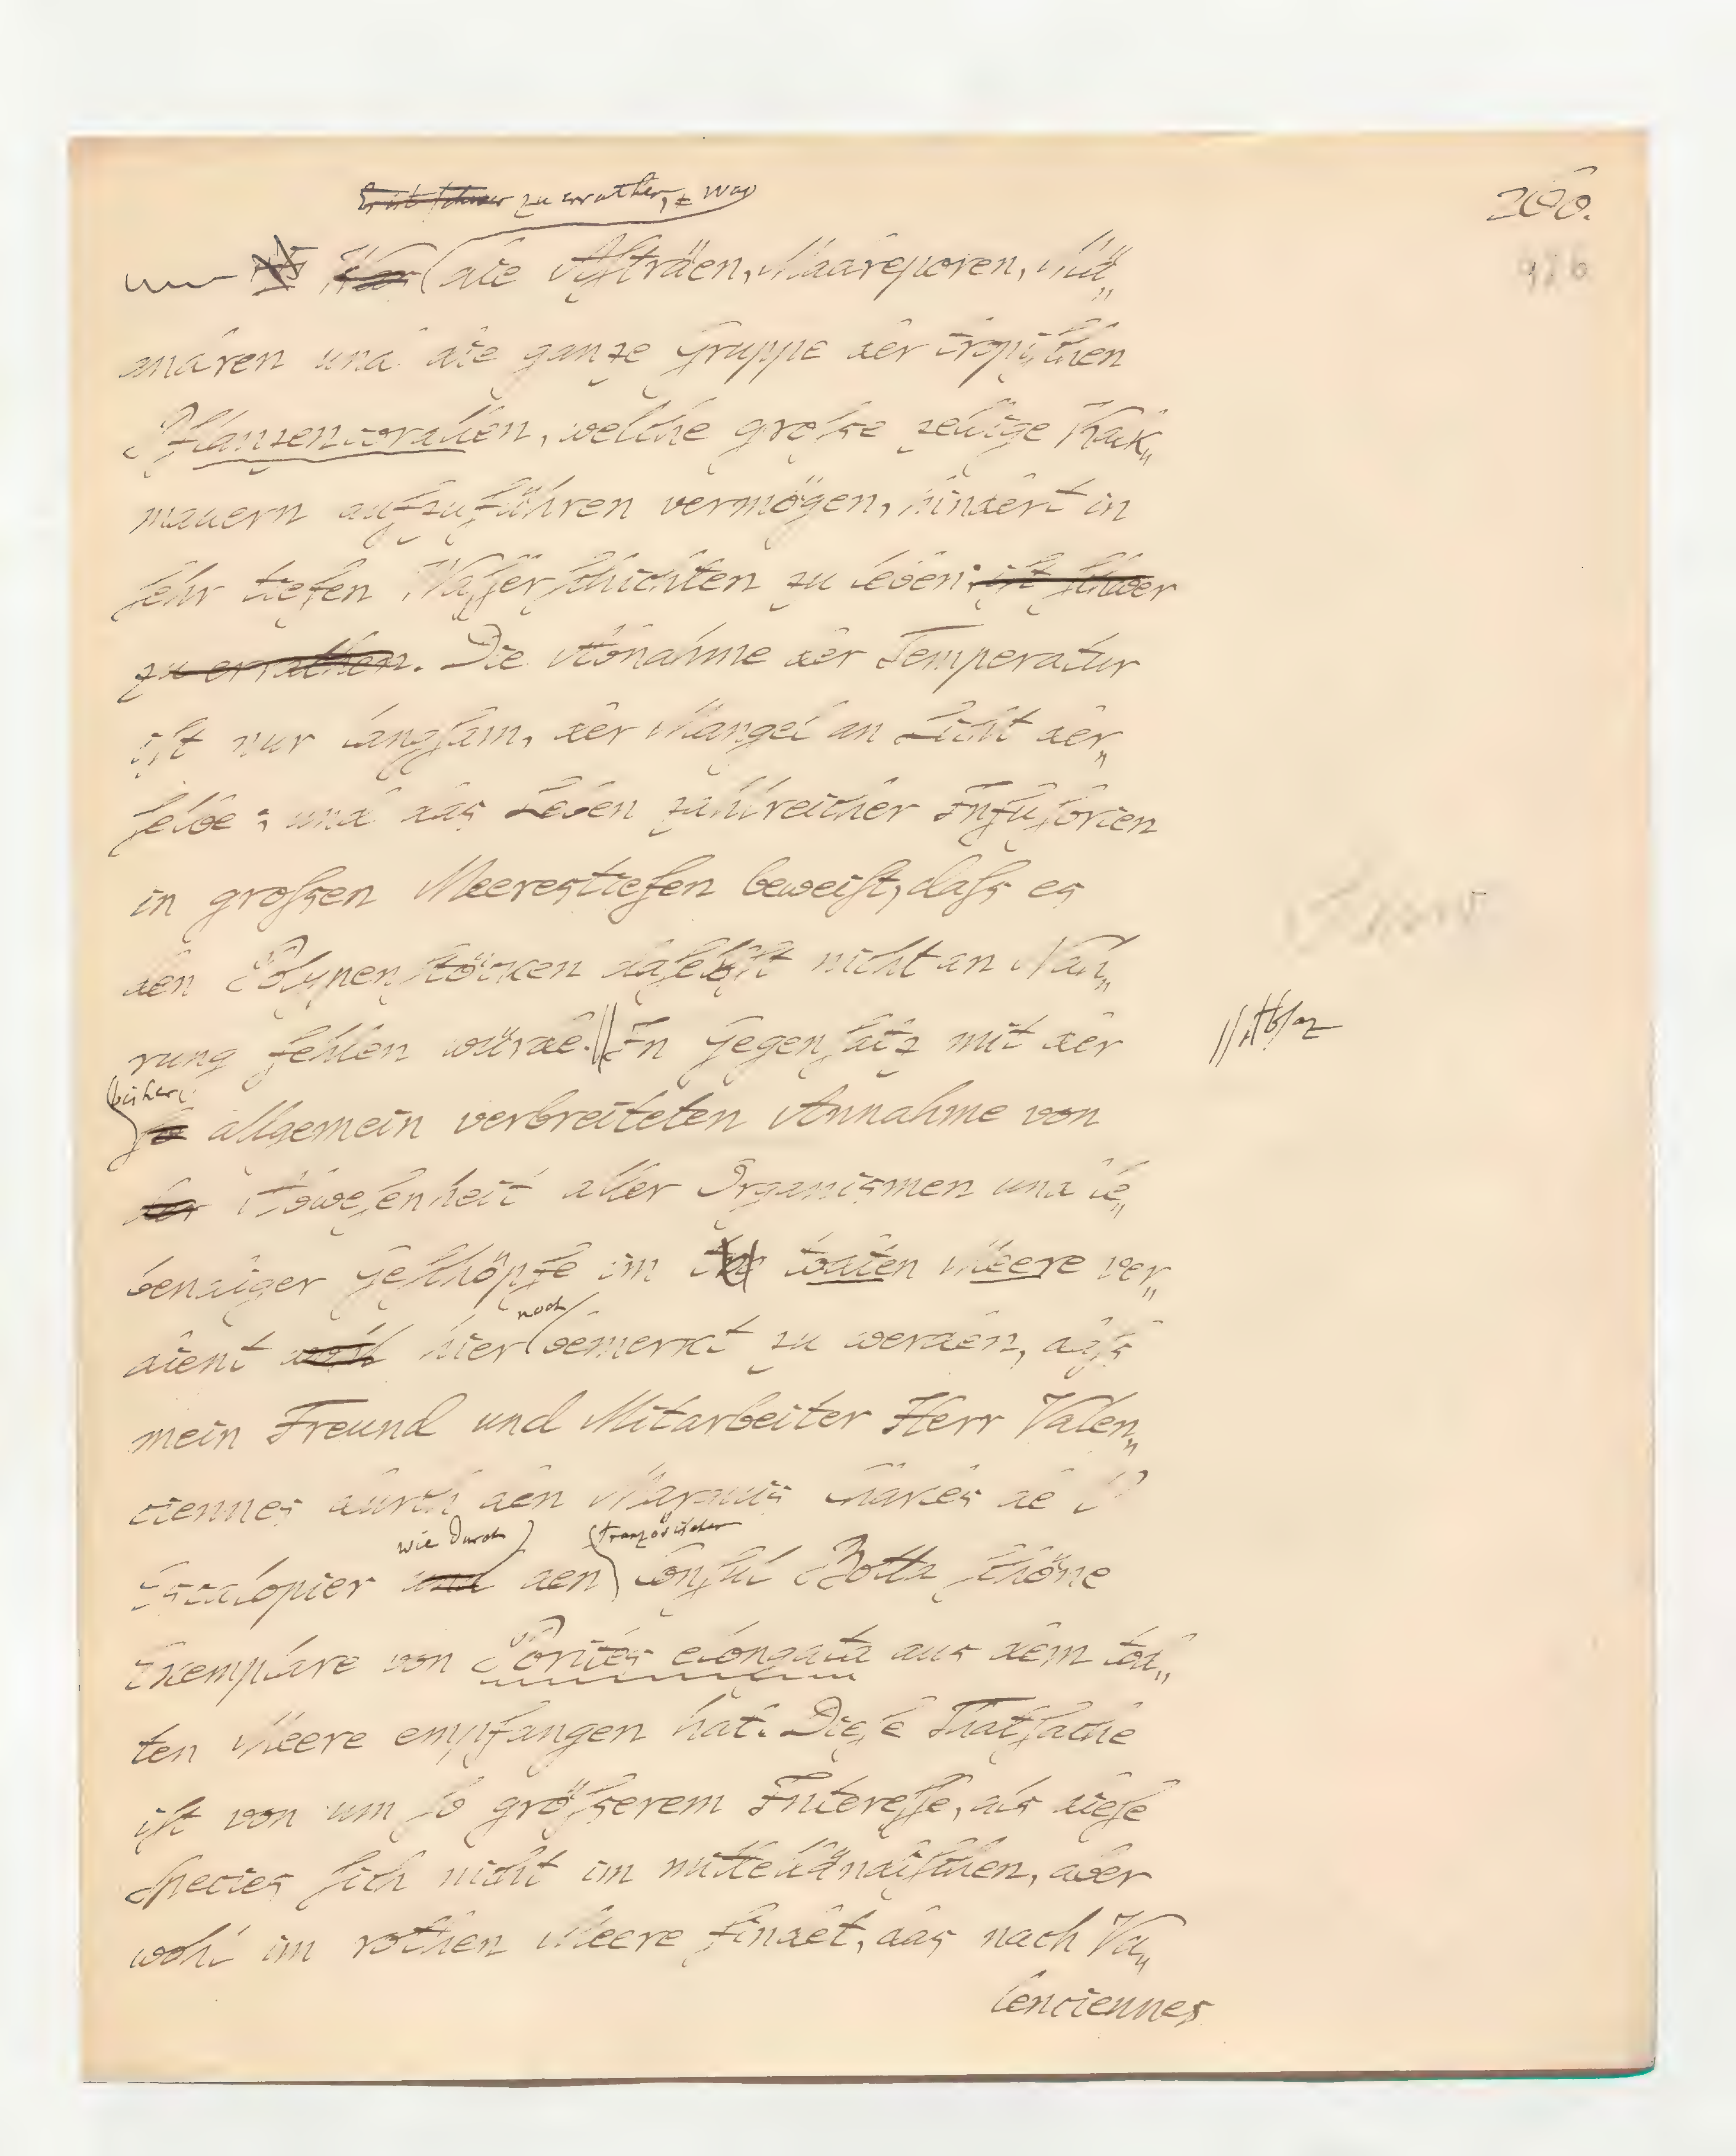 Es ist schwer zu errathen, was
200.
Was die Asträen, Madreporen, Mä„
andren und die ganze Gruppe der tropischen
Pflanzencorallen, welche große zellige Kalk„
mauern aufzuführen vermögen, hindert in
sehr tiefen Wasserschichten zu leben. ist schwer
zu errathen. Die Abnahme der Temperatur
ist nur langsam, der Mangel an Licht der„
selbe; und das Leben zahlreicher Infusorien
in großen Meerestiefen beweist, daß es
den Polypenstöcken daselbst nicht an Nah„
rung fehlen würde. || In Gegensatz mit der
|| Absaz
bisher
so allgemein verbreiteten Annahme von
der Abwesenheit aller Organismen und le„
bendiger Geschöpfe im todten Meere ver„
noch
dient wohl hier bemerkt zu werden, daß
mein Freund und Mitarbeiter Herr Valen„
ciennes durch den Marquis Charles de l'
wie durch französischen
Escalopier und den Consul Botta schöne
Exemplare von Porites elongata aus dem tod„
ten Meere empfangen hat. Diese Thatsache
ist von um so größerem Interesse, als diese
Species sich nicht im mittelländischen, aber
wohl im rothen Meere findet, das nach Va„
lenciennes